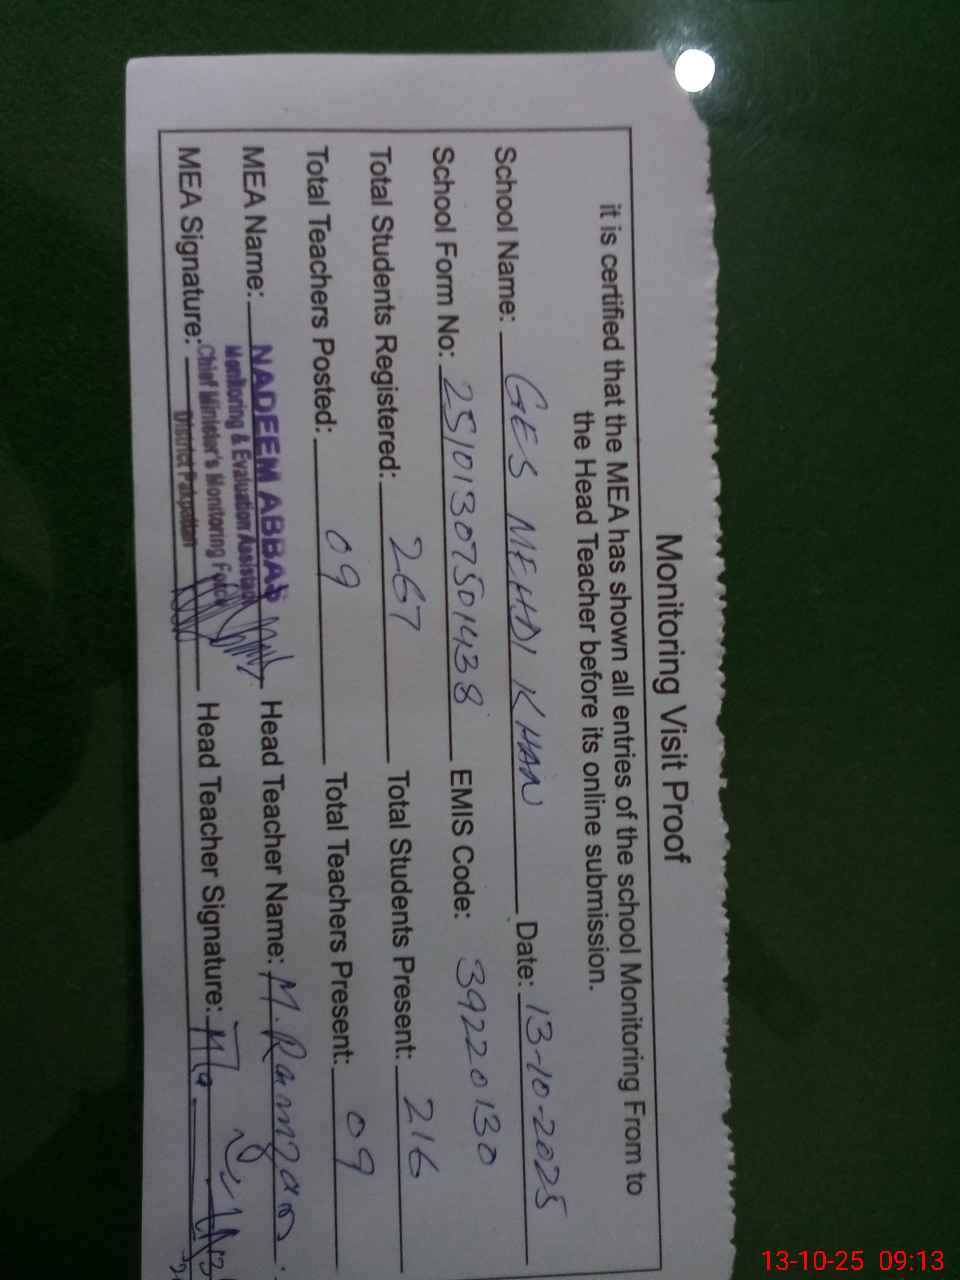 Monitoring Visit Proof
it is certified that the MEA has shown all entries of the school Monitoring From to
the Head Teacher before its online submission.
School Name: GES MEHDI KHAN Date: 13-10-2025
School Form No: 25101307501438 EMIS Code: 39220130
Total Students Registered: 267 Total Students Present: 216
Total Teachers Posted: 09 Total Teachers Present: 09
MEA Name: NADEEM ABBAS Head Teacher Name: M. Ramzan
Monitoring & Evaluation Assistant
Chief Minister's Monitoring Force
District Pakpattan
MEA Signature: Head Teacher Signature:
13-10-25 09:13